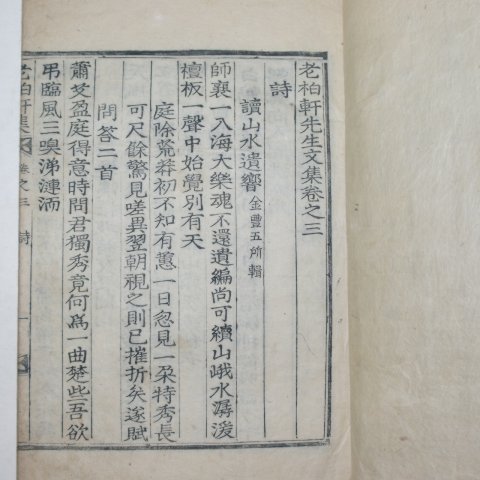 老柏軒先生文集卷之三
詩
讀山水遺響 金豐五所輯
師襄一入海大樂魂不還遺編尚可續山峨水潺湲
檀板一聲中始覺別有天
庭除荒莽初不知有蕙一日忽見一朶特秀長
可尺餘驚見嗟異翌朝視之則已摧折矣遂賦
問答二首
蕭艾盈庭得意時問君獨秀竟何爲一曲楚些吾欲
弔臨風三嗅涕漣洏
老柏軒集 卷之三 詩 一